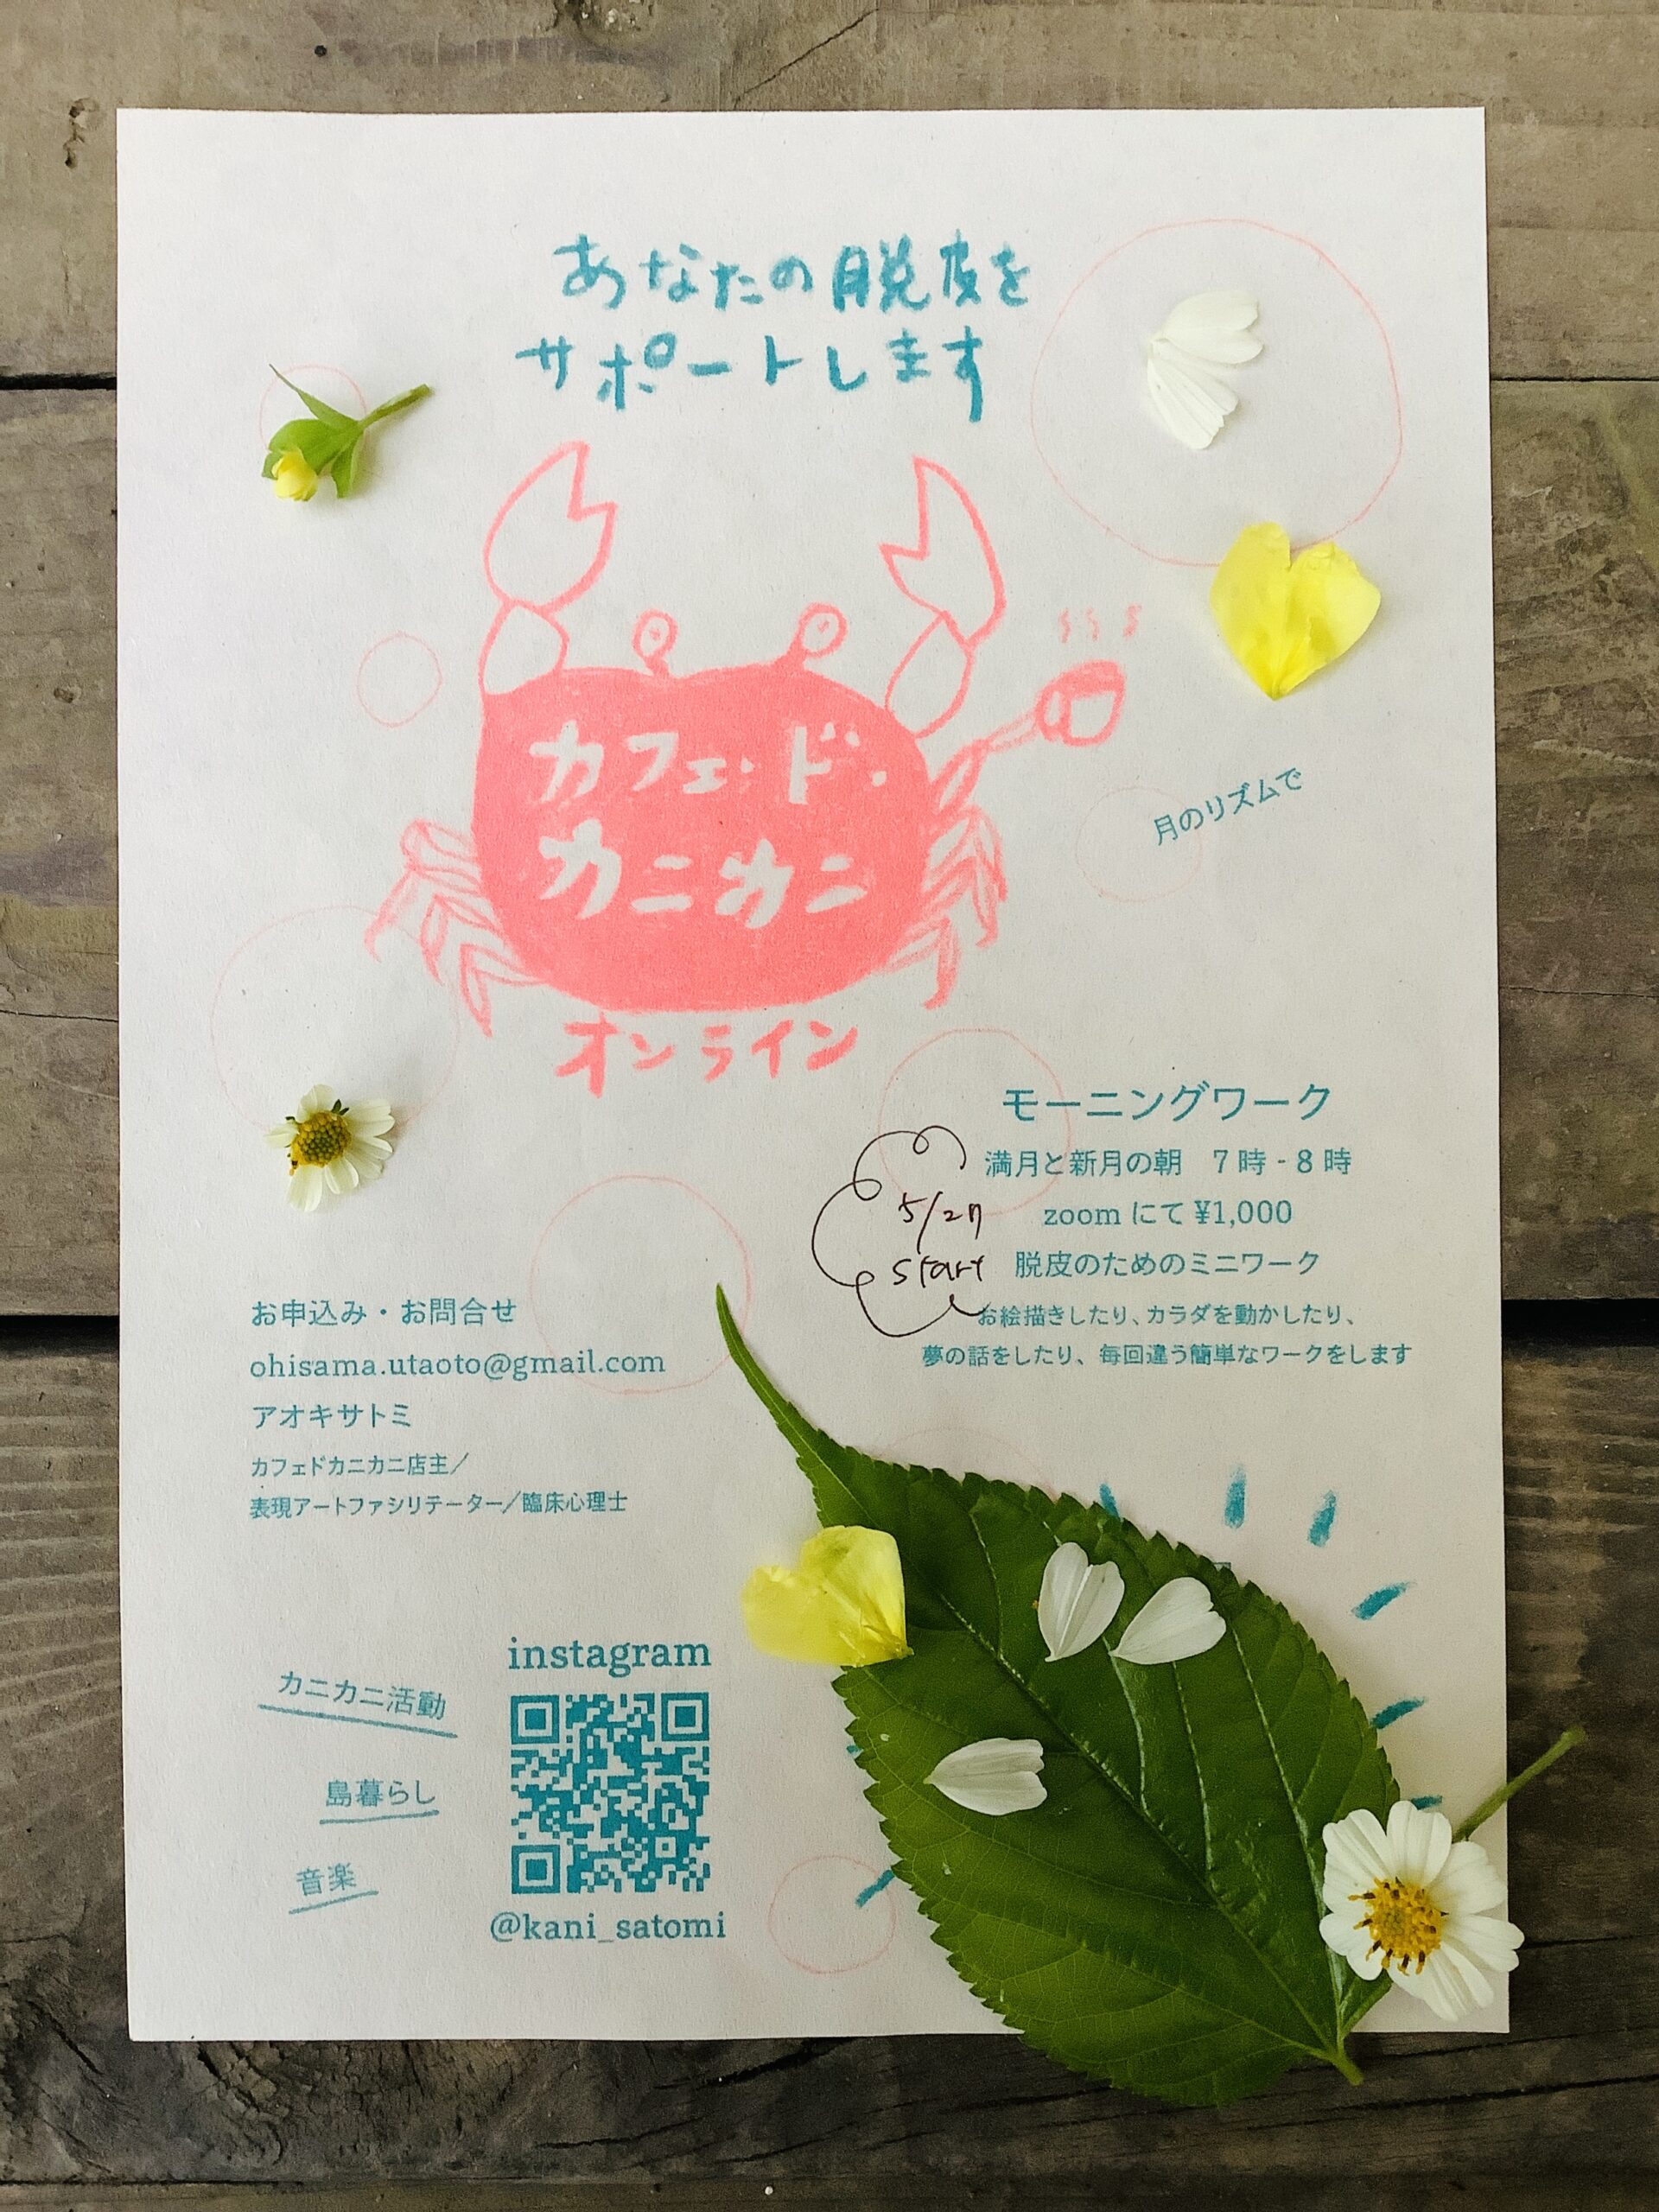 あなたの脱皮を
サポートします
カフェ・ド・
カニカニ
オンライン
月のリズムで
モーニングワーク
満月と新月の朝 7時-8時
zoomにて¥1,000
脱皮のためのミニワーク
お絵描きしたり、カラダを動かしたり、
夢の話をしたり、毎回違う簡単なワークをします
5/27
start
お申込み・お問合せ
ohisama.utaoto@gmail.com
アオキサトミ
カフェドカニカニ店主/
表現アートファシリテーター/臨床心理士
instagram
カニカニ活動
島暮らし
音楽
@kani_satomi